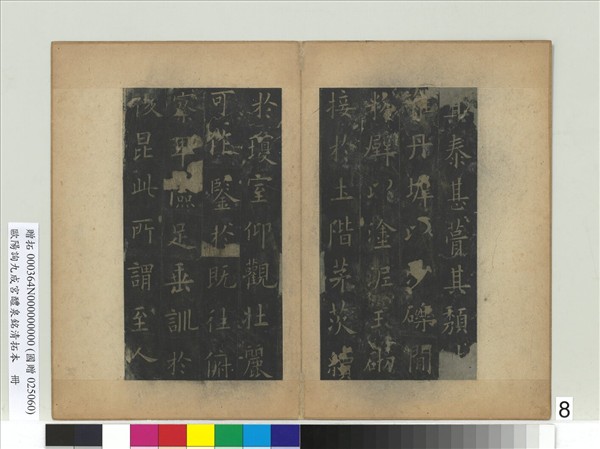 其泰甚葺其頹
雜丹墀以沙礫間
粉壁以塗泥玉砌
接於土階茅茨續
於瓊室仰觀壯麗
可作鑒於既往俯
察卑儉足垂訓於
後昆此所謂至人
贈拓 000364N000000000 (國贈 025060)
歐陽詢九成宮醴泉銘清拓本 冊
8